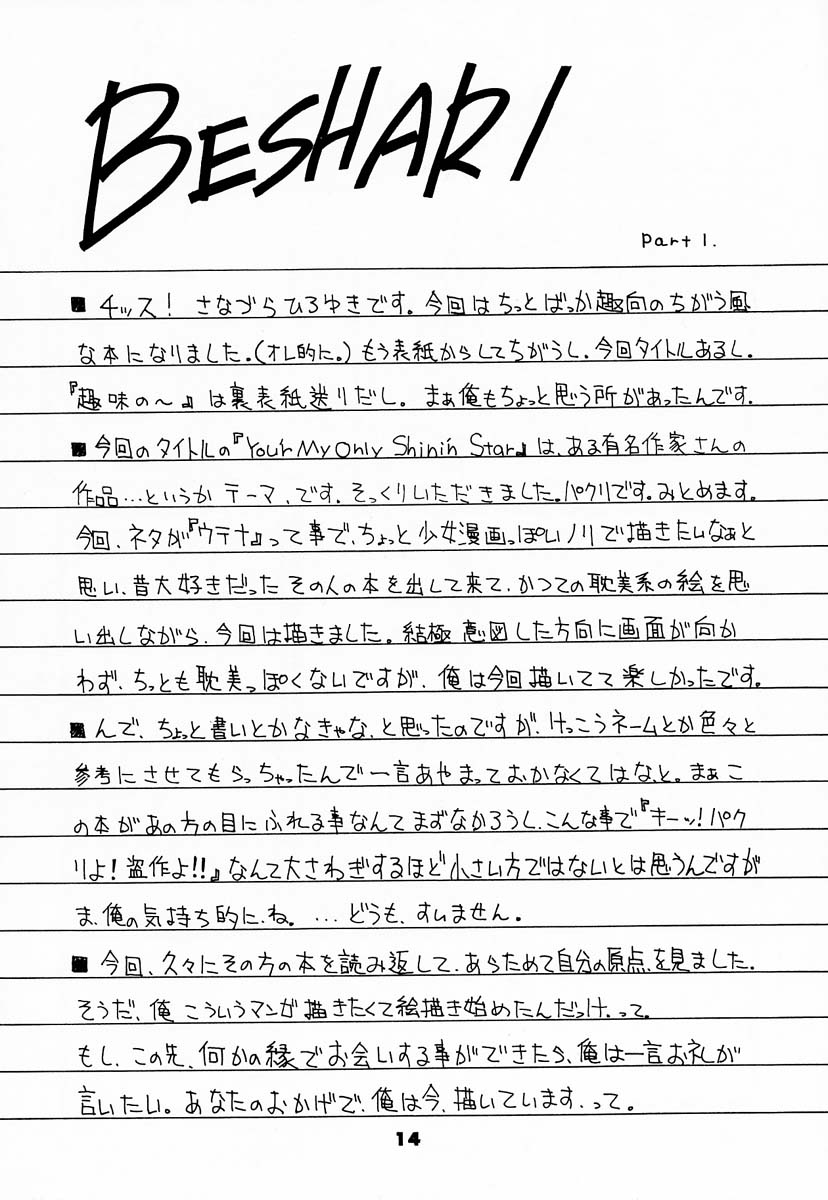 BESHARI
Part 1.
■ チッス! さなづらひろゆきです。今回はちっとばっか趣向のちがう風
な本になりました。(オレ的に。)もう表紙からしてちがうし、今回タイトルあるし。
『趣味の〜』は裏表紙送りだし。まぁ俺もちょっと思う所があったんです。
■ 今回のタイトルの『Your My Only Shinin Star』は、ある有名作家さんの
作品…というか テーマ、です。そっくりいただきました。パクリです。みとめます。
今回、ネタが『ウテナ』って事で、ちょっと少女漫画っぽいノリで描きたいなぁと
思い、昔大好きだった その人の本を出して来て、かつての耽美系の絵を思
い出しながら、今回は描きました。結極 意図した方向に画面が向か
わず、ちっとも耽美っぽくないですが、俺は今回描いてて楽しかったです。
■ んで、ちょっと書いとかなきゃな、と思ったのですが、けっこうネームとか色々と
参考にさせてもらっちゃったんで一言あやまっておかなくてはなと。まぁこ
の本があの方の目にふれる事なんてまずなかろうし、こんな事で『キーッ!パク
リよ!盗作よ!!』なんて大さわぎするほど小さい方ではないとは思うんですが
ま、俺の気持ち的に、ね。…どうも、すいません。
■ 今回、久々にその方の本を読み返して、あらためて自分の原点を見ました。
そうだ、俺 こういうマンガ描きたくて絵描き始めたんだっけ、って。
もし、この先、何かの縁でお会いする事ができたら、俺は一言お礼が
言いたい。あなたのおかげで、俺は今、描いています、って。
14